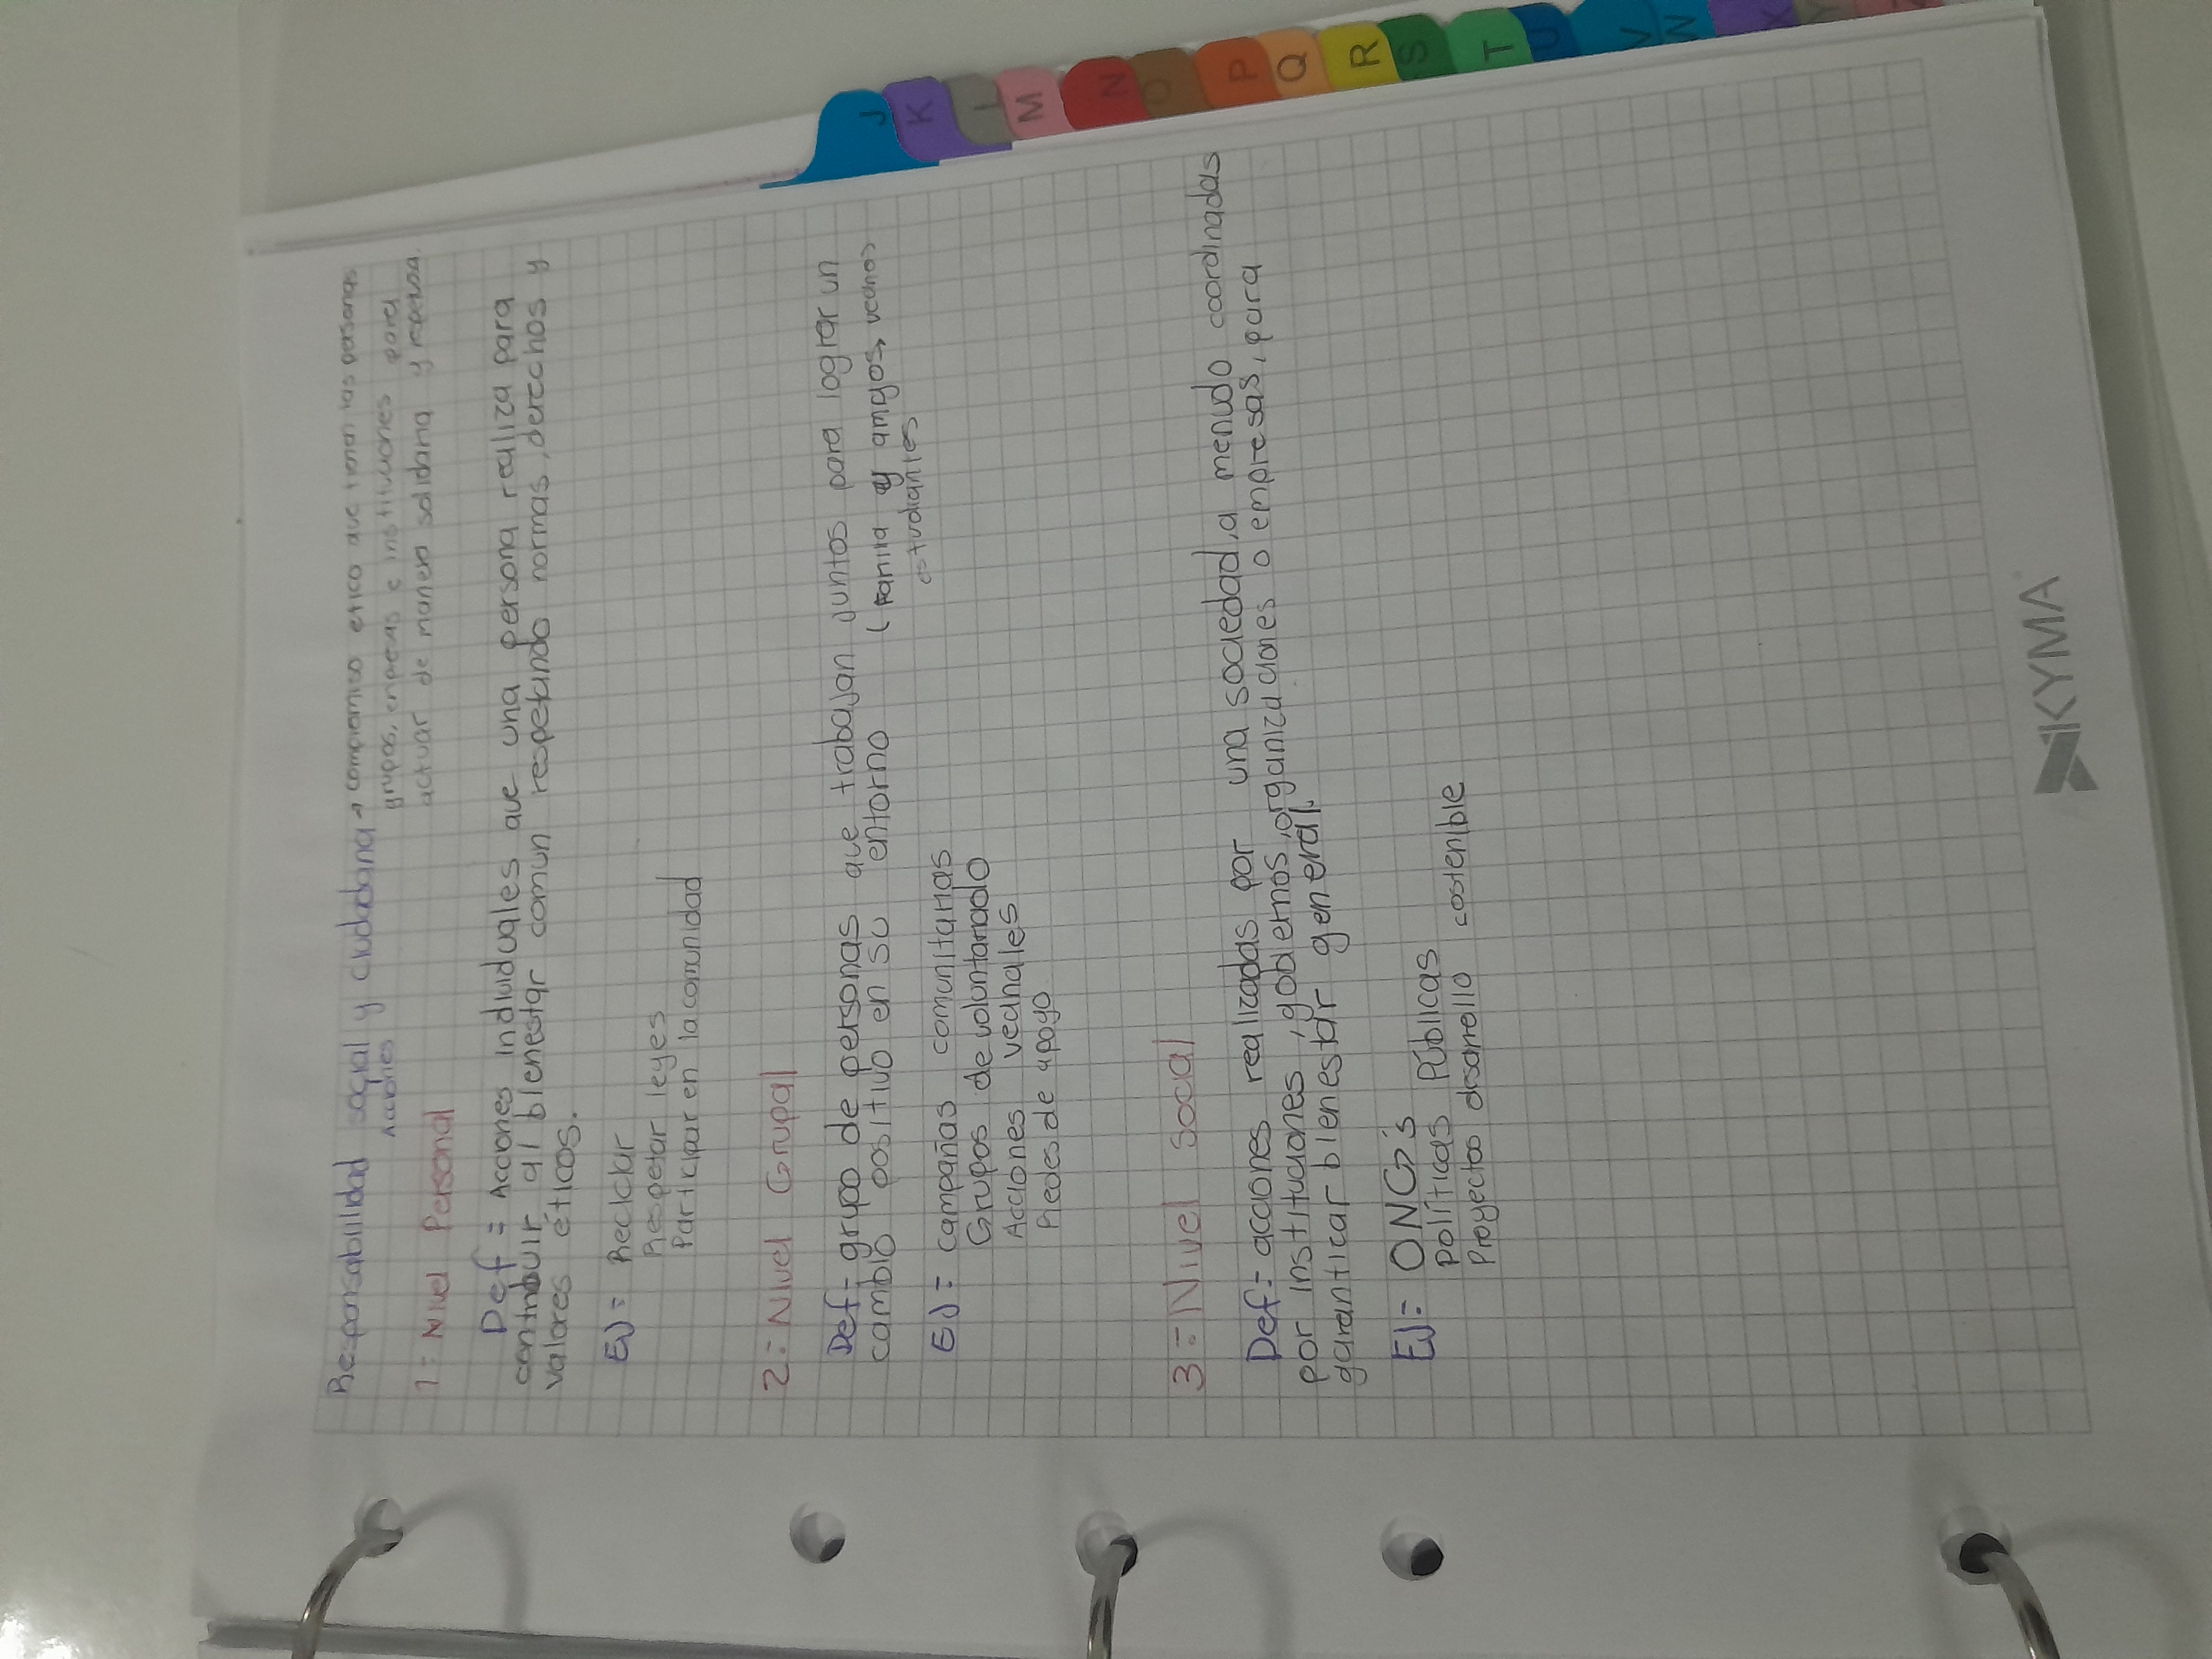 Responsabilidad social y ciudadana → compromiso etico que tienen las personas
grupos, empresas e instituciones para
actuar de manera solidaria y
Acciones
1: Nivel Personal
Def = Acciones individuales que una persona realiza para
contribuir al bienestar comun respetando normas, derechos y
valores éticos.
EJ = Reciclar
Respetar leyes
Participar en la comunidad
2: Nivel Grupal
Def = grupo de personas que trabajan juntos para lograr un
cambio positivo en su entorno (Familia y amigos, vecinos
estudiantes
EJ = campañas comunitarias
Grupos de voluntariado
Acciones vecinales
Redes de apoyo
3 = Nivel social
Def = acciones realizadas por una sociedad, a menudo coordinadas
por instituciones, gobiernos, organizaciones o empresas, para
garanticar bienestar general.
EJ = ONG's
Políticas Públicas
Proyectos desarrollo costenible
KYMA
J
K
L
M
N
O
P
Q
R
S
T
U
V
W
X
Y
Z